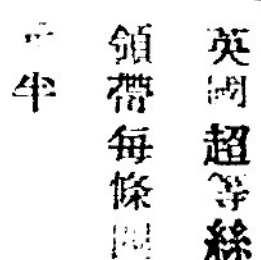 英國超等絲
領帶每條
半